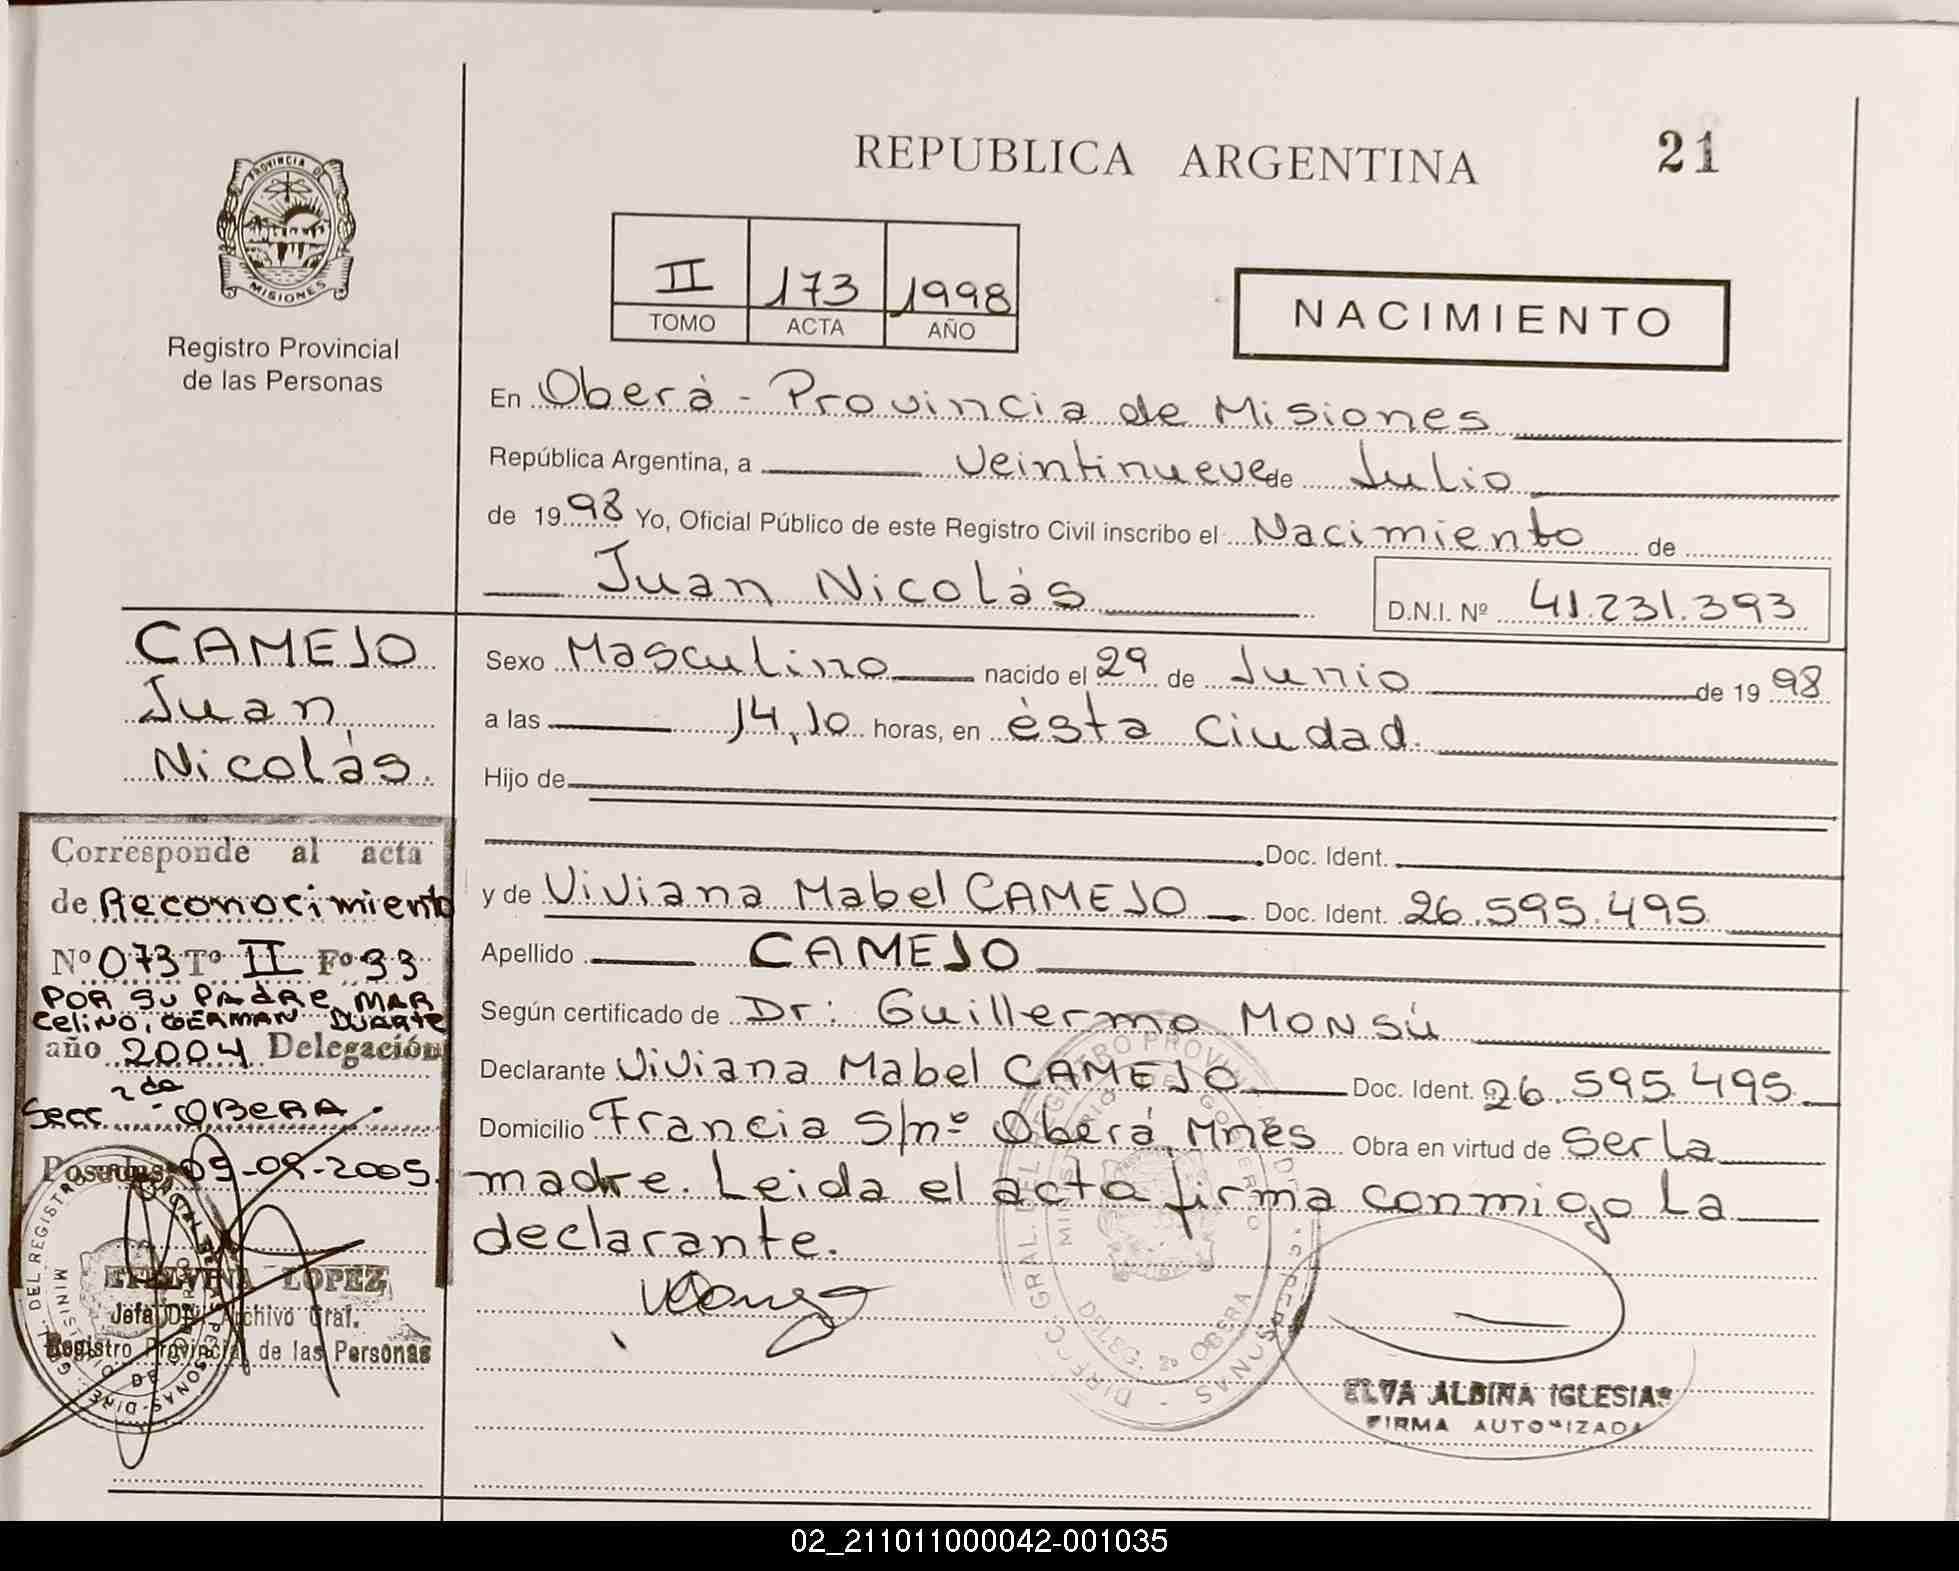 REPUBLICA ARGENTINA
21
PROVINCIA DE
MISIONES
Registro Provincial
de las Personas
II 173 1998
TOMO ACTA AÑO
NACIMIENTO
En Oberá - Provincia de Misiones
República Argentina, a veintinueve de Julio
de 1998 Yo, Oficial Público de este Registro Civil inscribo el Nacimiento de
Juan Nicolás D.N.I. Nº 41.231.393
CAMEJO
Juan
Nicolás.
Sexo Masculino nacido el 29 de Junio de 1998
a las 14,10 horas, en ésta Ciudad.
Hijo de
Doc. Ident.
y de Viviana Mabel CAMEJO Doc. Ident. 26.595.495
Apellido CAMEJO
Según certificado de Dr: Guillermo MONSÚ
Declarante Viviana Mabel CAMEJO Doc. Ident. 26.595.495
Domicilio Francia S/nº Oberá Mnes Obra en virtud de ser la
madre. Leida el acta firma conmigo la
declarante.
Corresponde al acta
de Reconocimiento
Nº 073 Tº II Fº 33
POR SU PADRE MAR
CELINO, GERMAN DUARTE
año 2004 Delegación
2da
Secc. - OBERA.
Posadas, 09-2005.
LOPEZ
Jefa Archivo Gral.
Registro Provincial de las Personas
ELVA ALBINA IGLESIAS
FIRMA AUTORIZADA
02_211011000042-001035